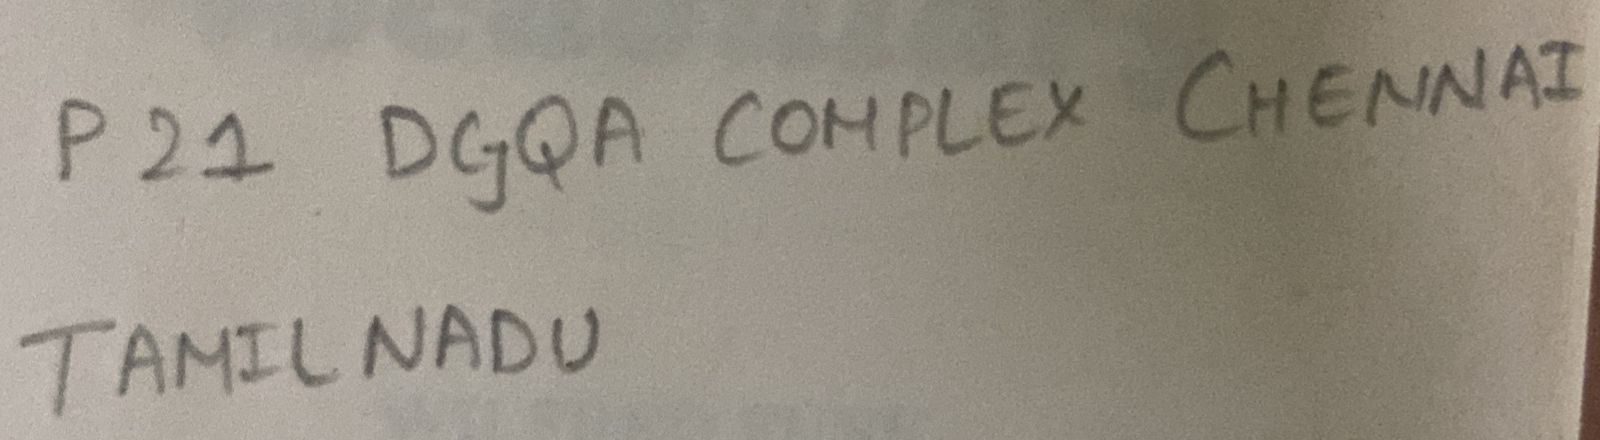 P 21 DGQA COMPLEX CHENNAI
TAMIL NADU